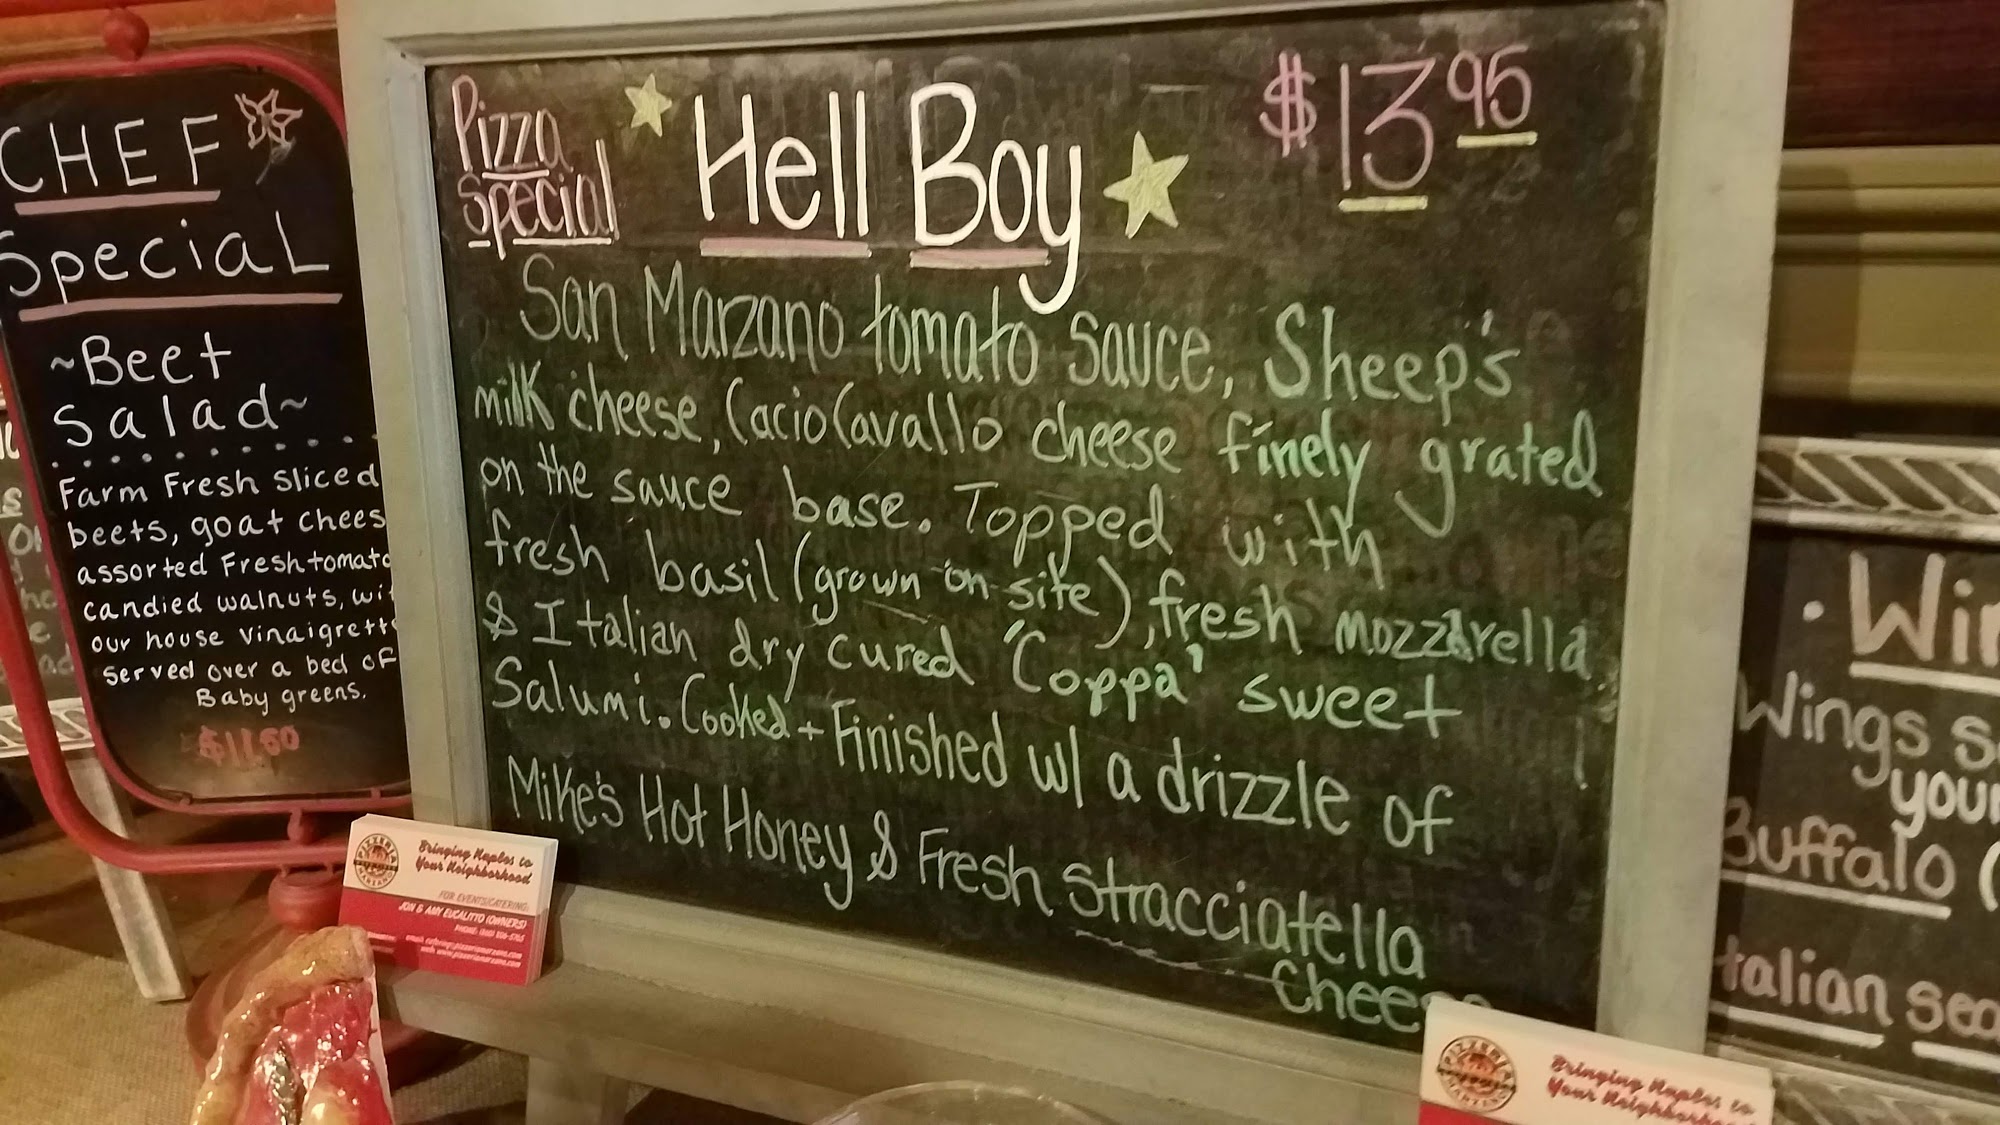 CHEF
Special
~Beet
Salad~
Farm Fresh sliced
beets, goat chees
assorted Fresh tomato
candied walnuts, wi
our house vinaigrett
served over a bed of
Baby greens.
$11.50
Pizza
Special
Hell Boy
$13.95
San Marzano tomato sauce, Sheep's
milk cheese, CacioCavallo cheese finely grated
on the sauce base. Topped with
fresh basil (grown on site), fresh mozzarella
& Italian dry cured 'Coppa' sweet
Salumi. Cooked + Finished w/ a drizzle of
Mike's Hot Honey & Fresh Stracciatella
Cheese
Wings
your
Buffalo (
Italian sea
Bringing Naples to
Your Neighborhood
FOR EVENTS/CATERING:
JON & AMY EUCALITTO (OWNERS)
PIZZERIA
MARZANO
Bringing Naples to
Your Neighborhood
PIZZERIA
MARZANO